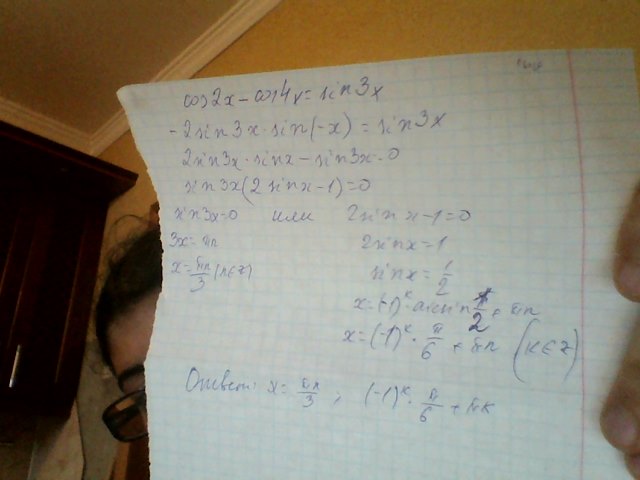 cos2x - cos4x = sin3x
-2sin3x·sin(-x) = sin3x
2sin3x·sinx - sin3x = 0
sin3x(2sinx-1)=0
sin3x=0 или 2sinx-1=0
3x=πn 2sinx=1
x=πn/3 (n∈Z) sinx=1/2
x=(-1)^k·arcsin 1/2 + πn
x=(-1)^k·π/6 + πn (k∈Z)
Ответ: x=πn/3; (-1)^k·π/6 + πk